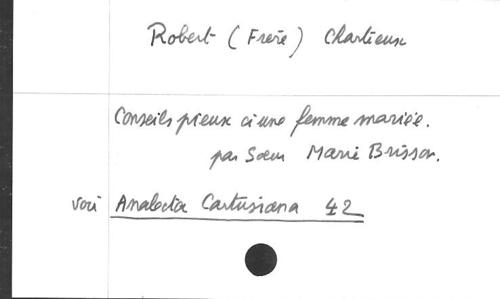 Robert (Frère) Chartreux
Conseils pieux à une femme mariée.
par Soeur Marie Brisson.
voir Analecta Cartusiana 42